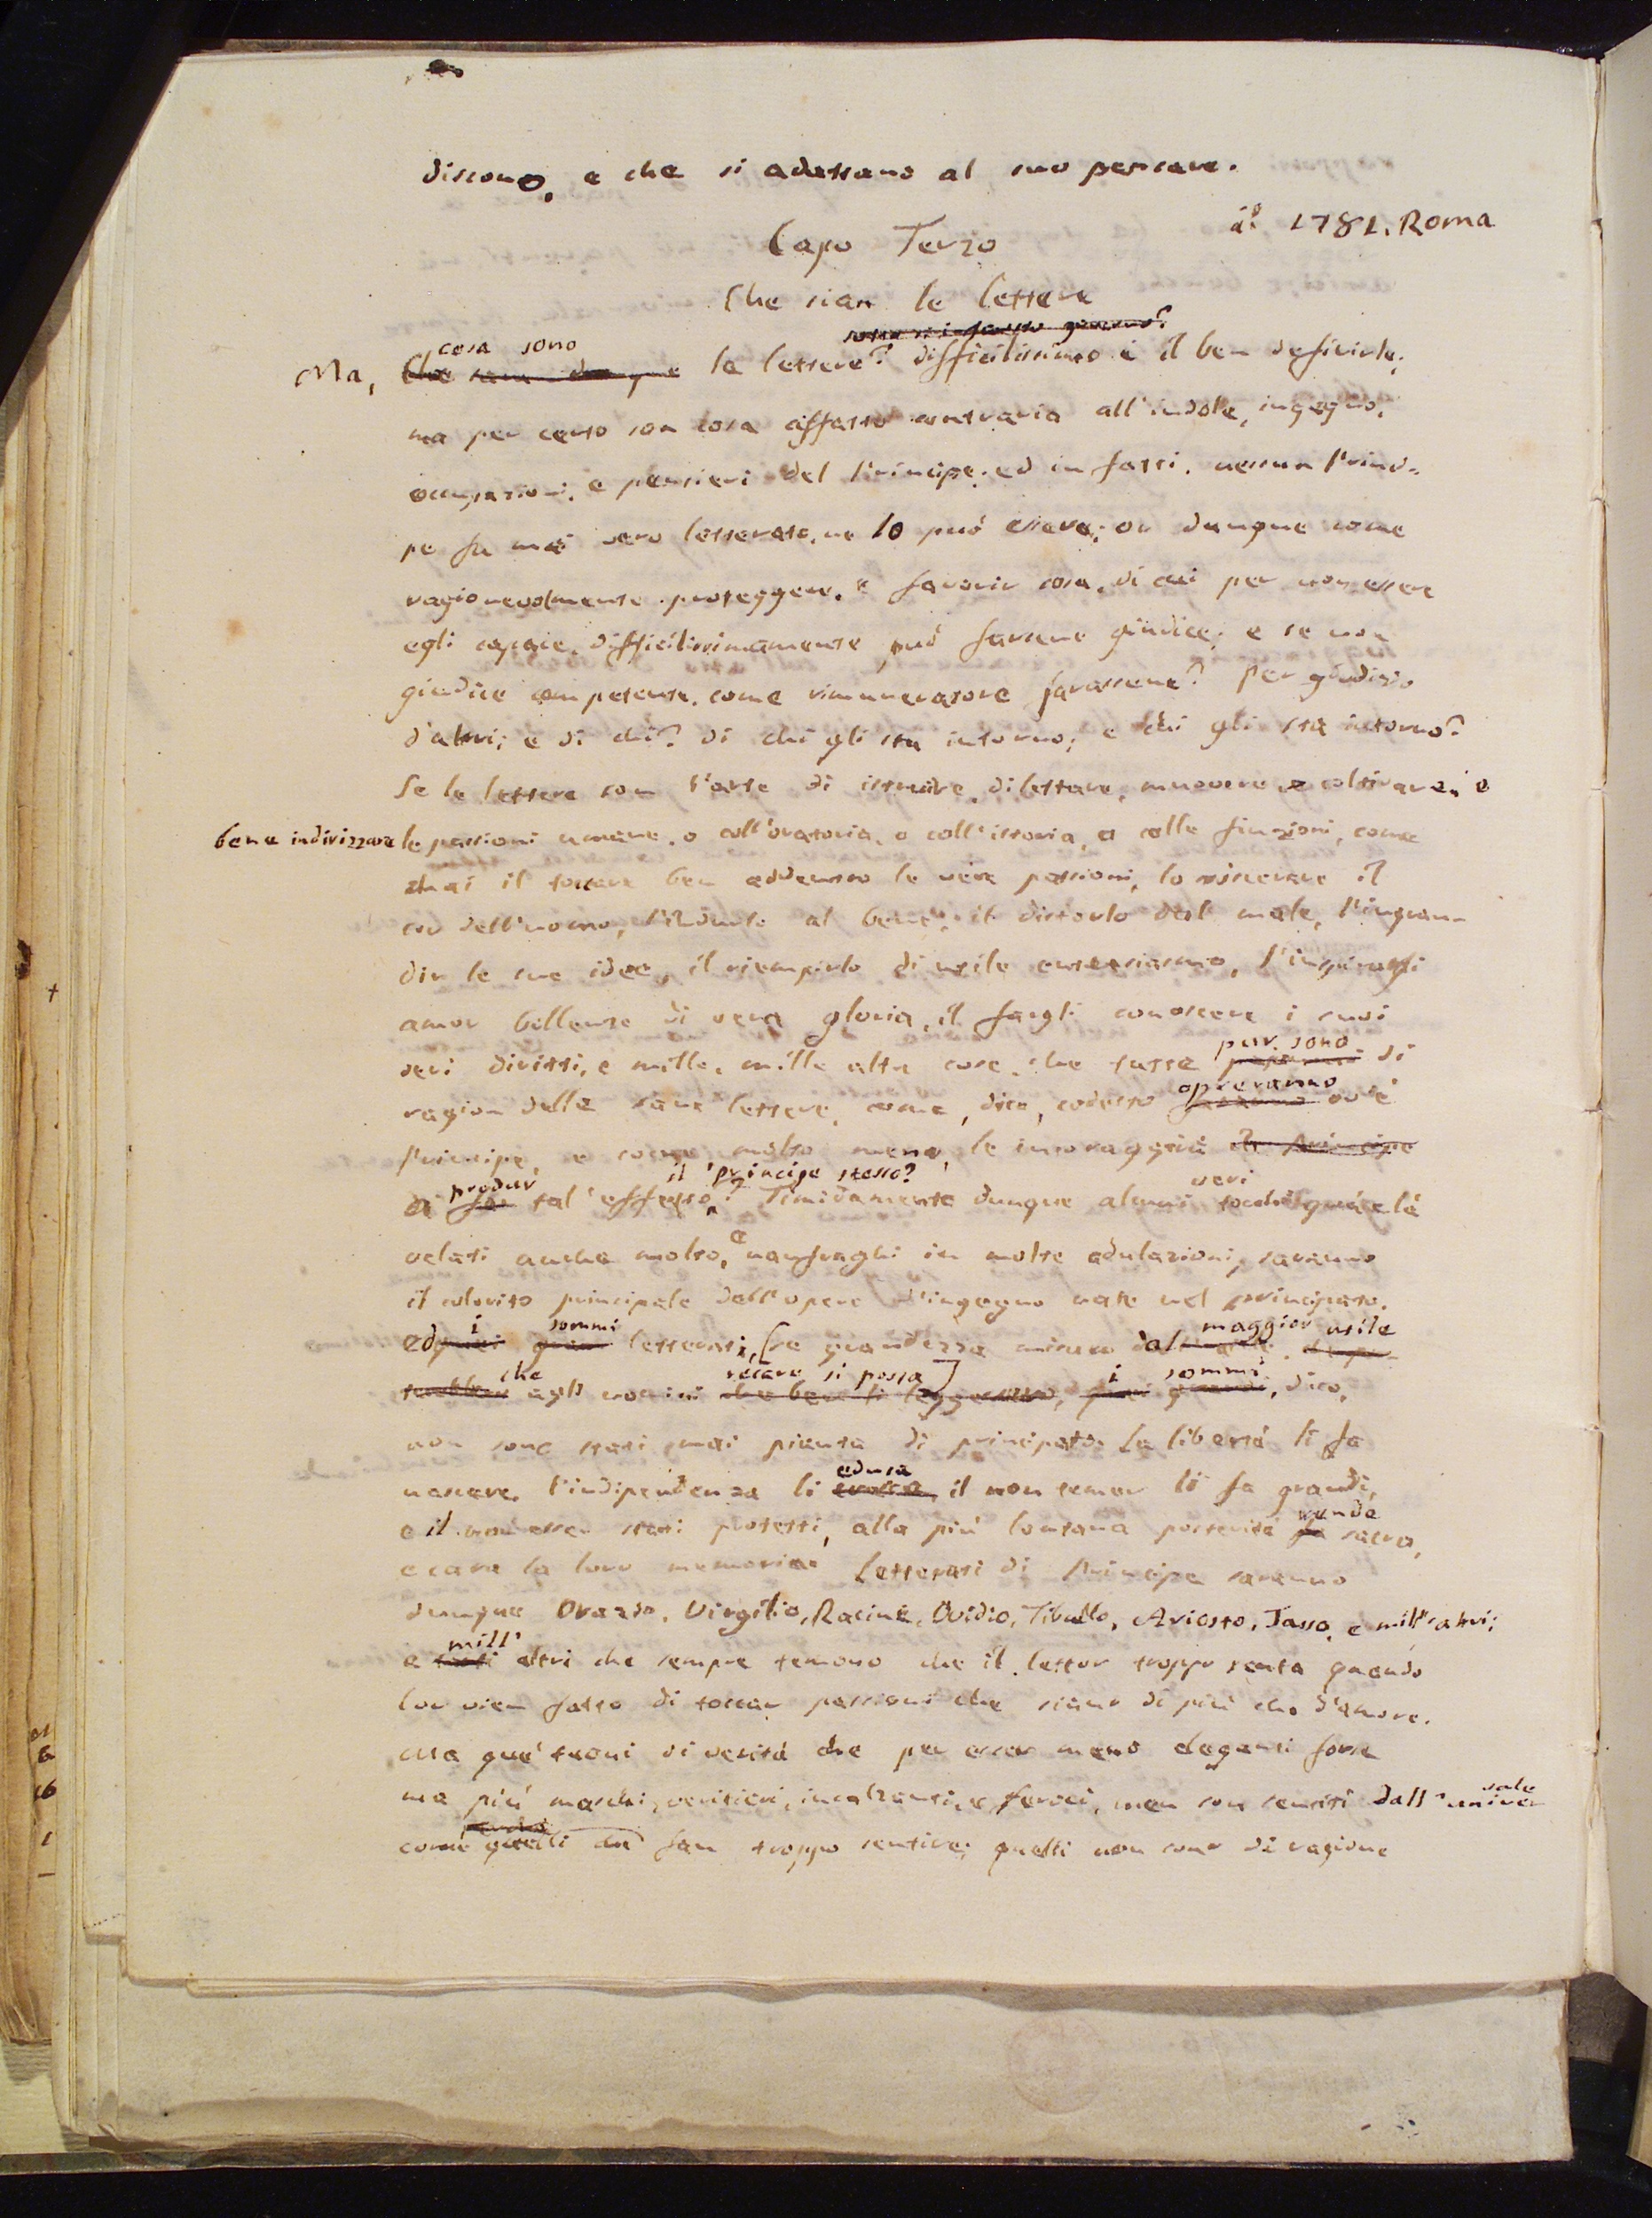 discono, e che si adattano al suo pensare.
a.° 1781. Roma
Capo Terzo
Che sian le lettere
Ma, cosa sono le lettere? difficilissimo è il ben definirle;
ma per certo son cosa affatto contraria all'indole, ingegno,
occupazioni, e pensieri del Principe: ed in fatti, nessun Princi-
pe fu mai vero letterato, ne lo può essere; or dunque come
ragionevolmente proteggere, e favorir cosa, di cui per non essere
egli capace, difficilissimamente può farsene giudice; e se non
giudice competente, come rimuneratore farassene? Per giudizio
d'altri; e di chi? di chi gli sta intorno; e chi gli sta intorno?
Se le lettere son l'arte di istruire, dilettare, muovere e coltivare, e
bene indirizzare le passioni umane, o coll'oratoria, o coll'istoria, o colle finzioni, come
mai il toccare ben addentro le vere passioni, lo sviscerare il
cor dell'uomo, l'indurlo al bene, il distorlo dal male, l'ingran-
dir le sue idee, il riempirlo di utile entusiasmo, l'inspirargli
amor bollente di vera gloria, il fargli conoscere i suoi
veri diritti, e mille, mille altre cose, che tutte pur sono di
ragion delle sane lettere, come, dico, codesto opreranno ov'è
Principe, e come molto meno, le incoraggirà
a produr tal'effetto, il principe stesso? Timidamente dunque alcuni veri tocchi quà e là
velati anche molto, e naufraghi in molte adulazioni, saranno
il colorito principale dell'opere d'ingegno nate nel principato.
ed i sommi letterati, [se grandezza misuro dal maggior utile
che agli uomini recare si possa] i sommi, dico,
non sono stati mai pianta di principato. La libertà li fa
nascere, l'indipendenza li educa, il non temer li fa grandi,
e il non esser stati protetti, alla più lontana posterità rende sacra,
e cara la loro memoria. Letterati di Principe saranno
dunque Orazio, Virgilio, Racine, Ovidio, Tibullo, Ariosto, Tasso, e mill'altri;
e mill' altri che sempre temono che il lettor troppo senta quando
lor vien fatto di toccar passioni che siano di più che d'amore.
Ma que' tuoni di verità che per esser meno eleganti forse
ma più maschi, veritieri, incalzanti, e feroci, men son sentiti dall'universale
come quelli che fan troppo sentire; quelli non sono di ragione